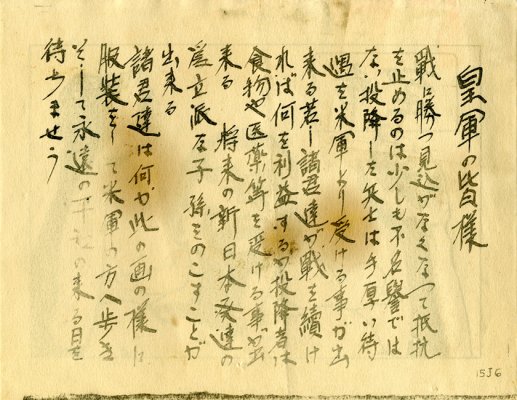 皇軍の皆様
戰に勝つ見込がなくなつて抵抗
を止めるのは少しも不名譽では
ない投降した兵士は手厚い待
遇を米軍より受ける事が出
来る若し諸君達が戰を續け
れば何を利益するか投降者は
食物や医薬等を受ける事が出
来る 将来の新日本発達の
為立派な子孫をのこすことが
出来る
諸君達は何か此の画の様に
服装をして米軍の方へ歩き
そして永遠の平和の来る日を
待ちませう
15J6